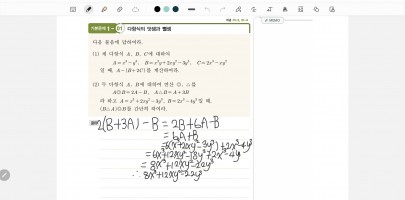 다항식의 덧셈과 뺄셈
다음 물음에 답하여라.
(1) 세 다항식 A, B, C에 대하여
A=x³-y³, B=x²y+2xy²-3y³, C=2x³-xy²
일 때, A-(B+2C)를 계산하여라.
(2) 두 다항식 A, B에 대하여 연산 ◎, △를
A◎B=2A-B, A△B=A+3B
라 하고 A=x³+2xy²-3y³, B=2x³-4y³일 때,
(B△A)◎B를 간단히 하여라.
2(B+3A)-B = 2B+6A-B
= 6A+B
=6(x³+2xy²-3y³)+2x³-4y³
=6x³+12xy²-18y³+2x³-4y³
= 8x³+12xy²-22y³
∴ 8x³+12xy²-22y³